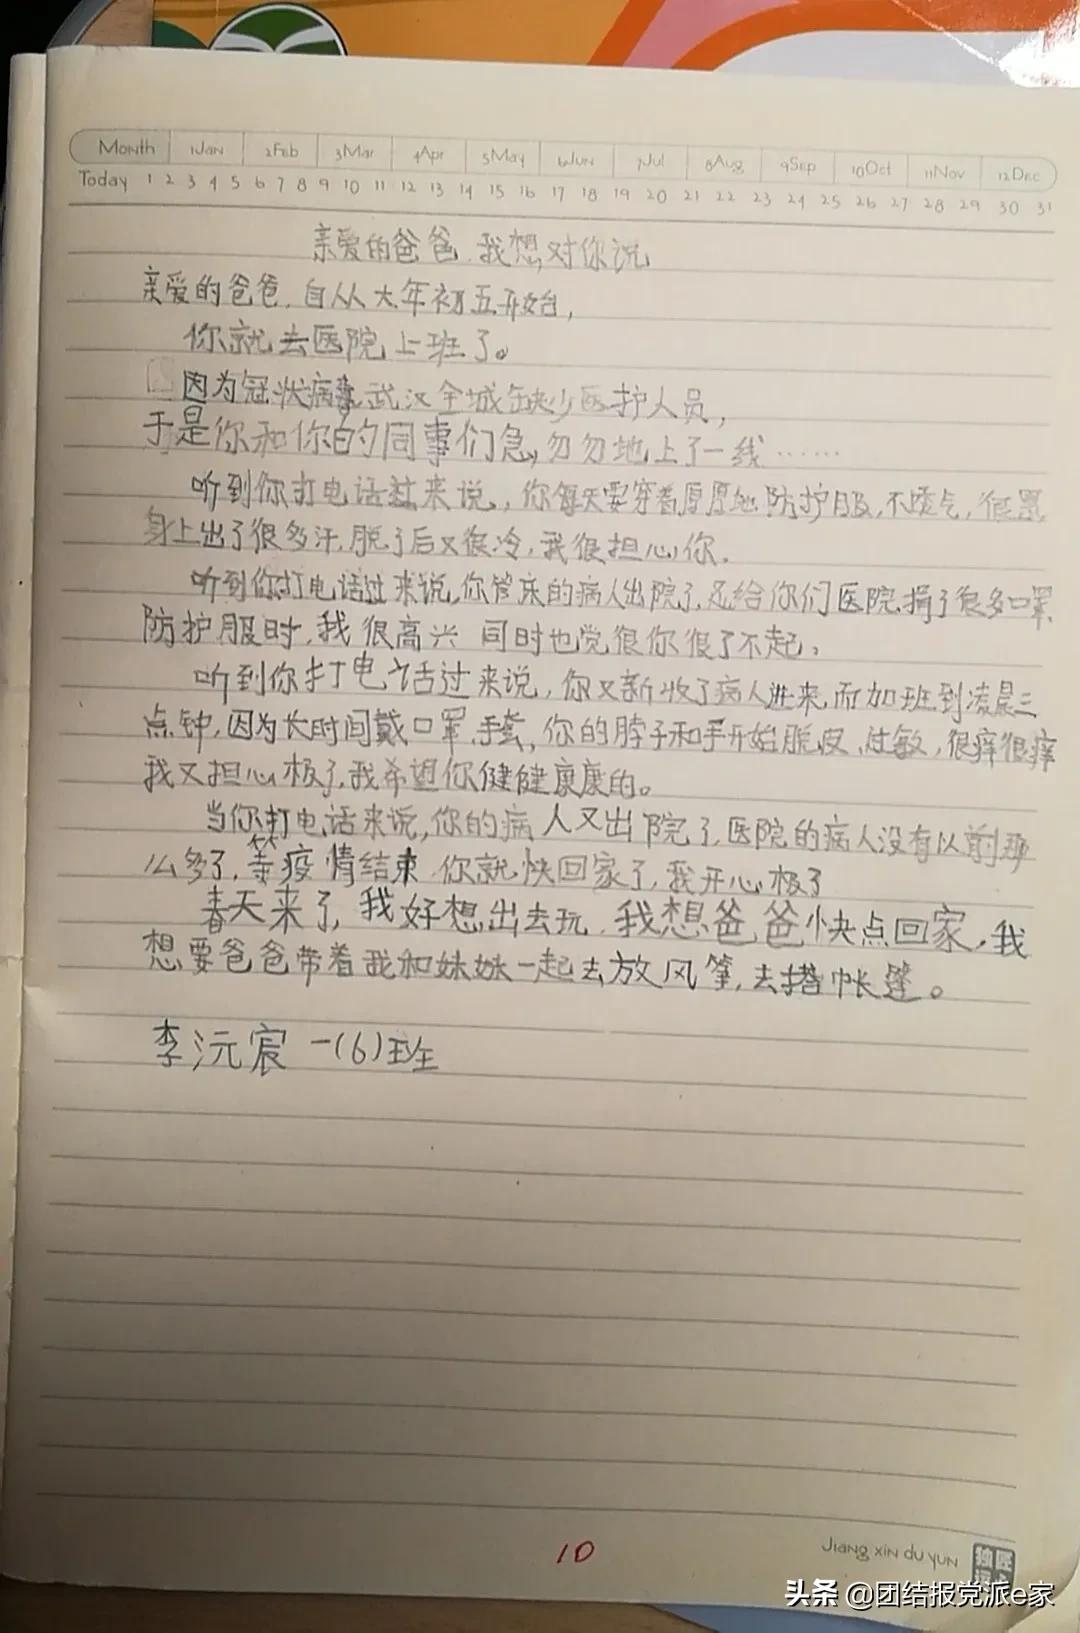 Month 1Jan 2Feb 3Mar 4Apr 5May 6Jun 7Jul 8Aug 9Sep 10Oct 11Nov 12Dec
Today 1 2 3 4 5 6 7 8 9 10 11 12 13 14 15 16 17 18 19 20 21 22 23 24 25 26 27 28 29 30 31
亲爱的爸爸,我想对你说
亲爱的爸爸,自从大年初五开始,
你就去医院上班了。
因为冠状病毒武汉全城缺少医护人员,
于是你和你的同事们急,匆匆地上了一线……
听到你打电话过来说,,你每天要穿着厚厚地防护服,不透气,很累
身上出了很多汗,脱了后又很冷,我很担心你.
听到你打电话过来说,你管床的病人出院了,还给你们医院捐了很多口罩
防护服时,我很高兴 同时也觉很你很了不起。
听到你打电话过来说,你又新收了病人进来,而加班到凌晨三
点钟,因为长时间戴口罩,手套,你的脖子和手开始脱皮,过敏,很痒很痒
我又担心极了,我希望你健健康康的。
当你打电话来说,你的病人又出院了,医院的病人没有以前那
么多了,等疫情结束,你就快回家了,我开心极了
春天来了,我好想出去玩,我想爸爸快点回家,我
想要爸爸带着我和妹妹一起去放风筝,去搭帐篷。
李沅宸 一(6)班
10
Jiang xin du yun
头条 @团结报党派e家